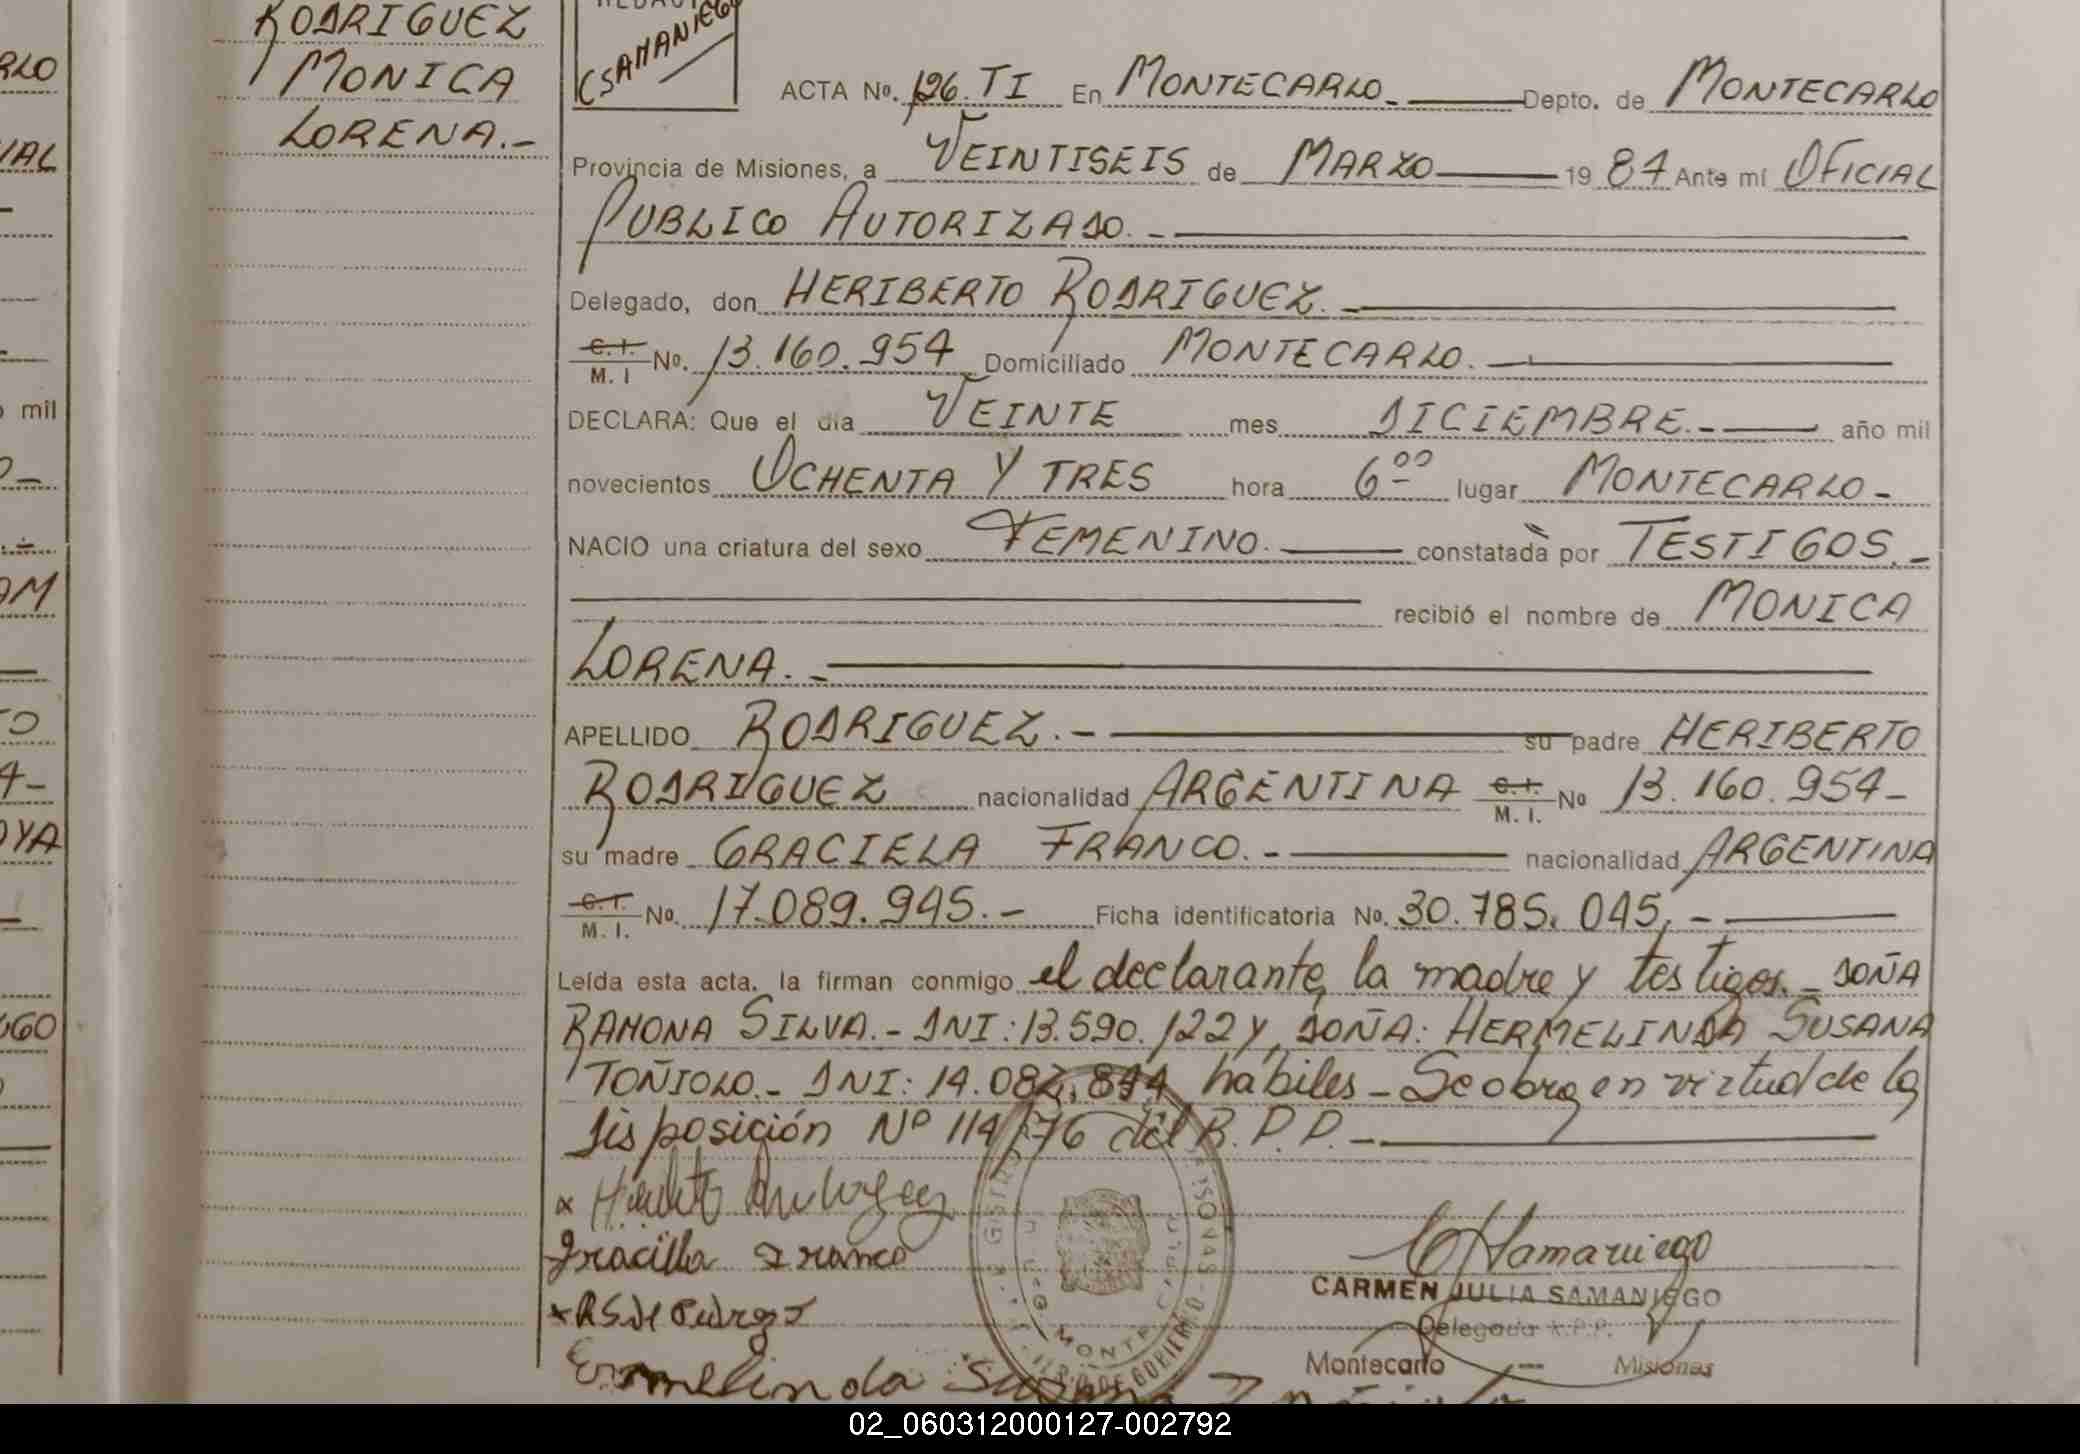 RLO
IAL
mil
AM
TO
4-
OYA
GGO
RODRIGUEZ
MONICA
LORENA.-
CSAMANIEGO
ACTA No. 126. TI En MONTECARLO.- Depto. de MONTECARLO
Provincia de Misiones, a VEINTISEIS de MARZO 1984 Ante mí OFICIAL
PUBLICO AUTORIZADO.-
Delegado, don HERIBERTO RODRIGUEZ.-
C.I. M. I No. 13.160.954 Domiciliado MONTECARLO.-
DECLARA: Que el dia VEINTE mes DICIEMBRE.- año mil
novecientos OCHENTA Y TRES hora 6 00 lugar MONTECARLO-
NACIO una criatura del sexo FEMENINO.- constatada por TESTIGOS.-
recibió el nombre de MONICA
LORENA.-
APELLIDO RODRIGUEZ.- su padre HERIBERTO
RODRIGUEZ nacionalidad ARGENTINA C.I. M. I. No 13.160.954-
su madre GRACIELA FRANCO.- nacionalidad ARGENTINA
C.I. M. I. No. 17.089.945.- Ficha identificatoria No. 30.785.045,-
Leída esta acta, la firman conmigo el declarante, la madre y testigos.- DOÑA
RAMONA SILVA.- DNI: 13.590.122 y, DOÑA: HERMELINDA SUSANA
TOÑIOLO.- DNI: 14.082.844 habiles - Se obra en virtud de la
disposición Nº 114/76 del R.P.P.-
Graciella Franco
CARMEN JULIA SAMANIEGO
Delegada R.P.P.
Montecarlo - Misiones
Ermelinda Susana
02_060312000127-002792